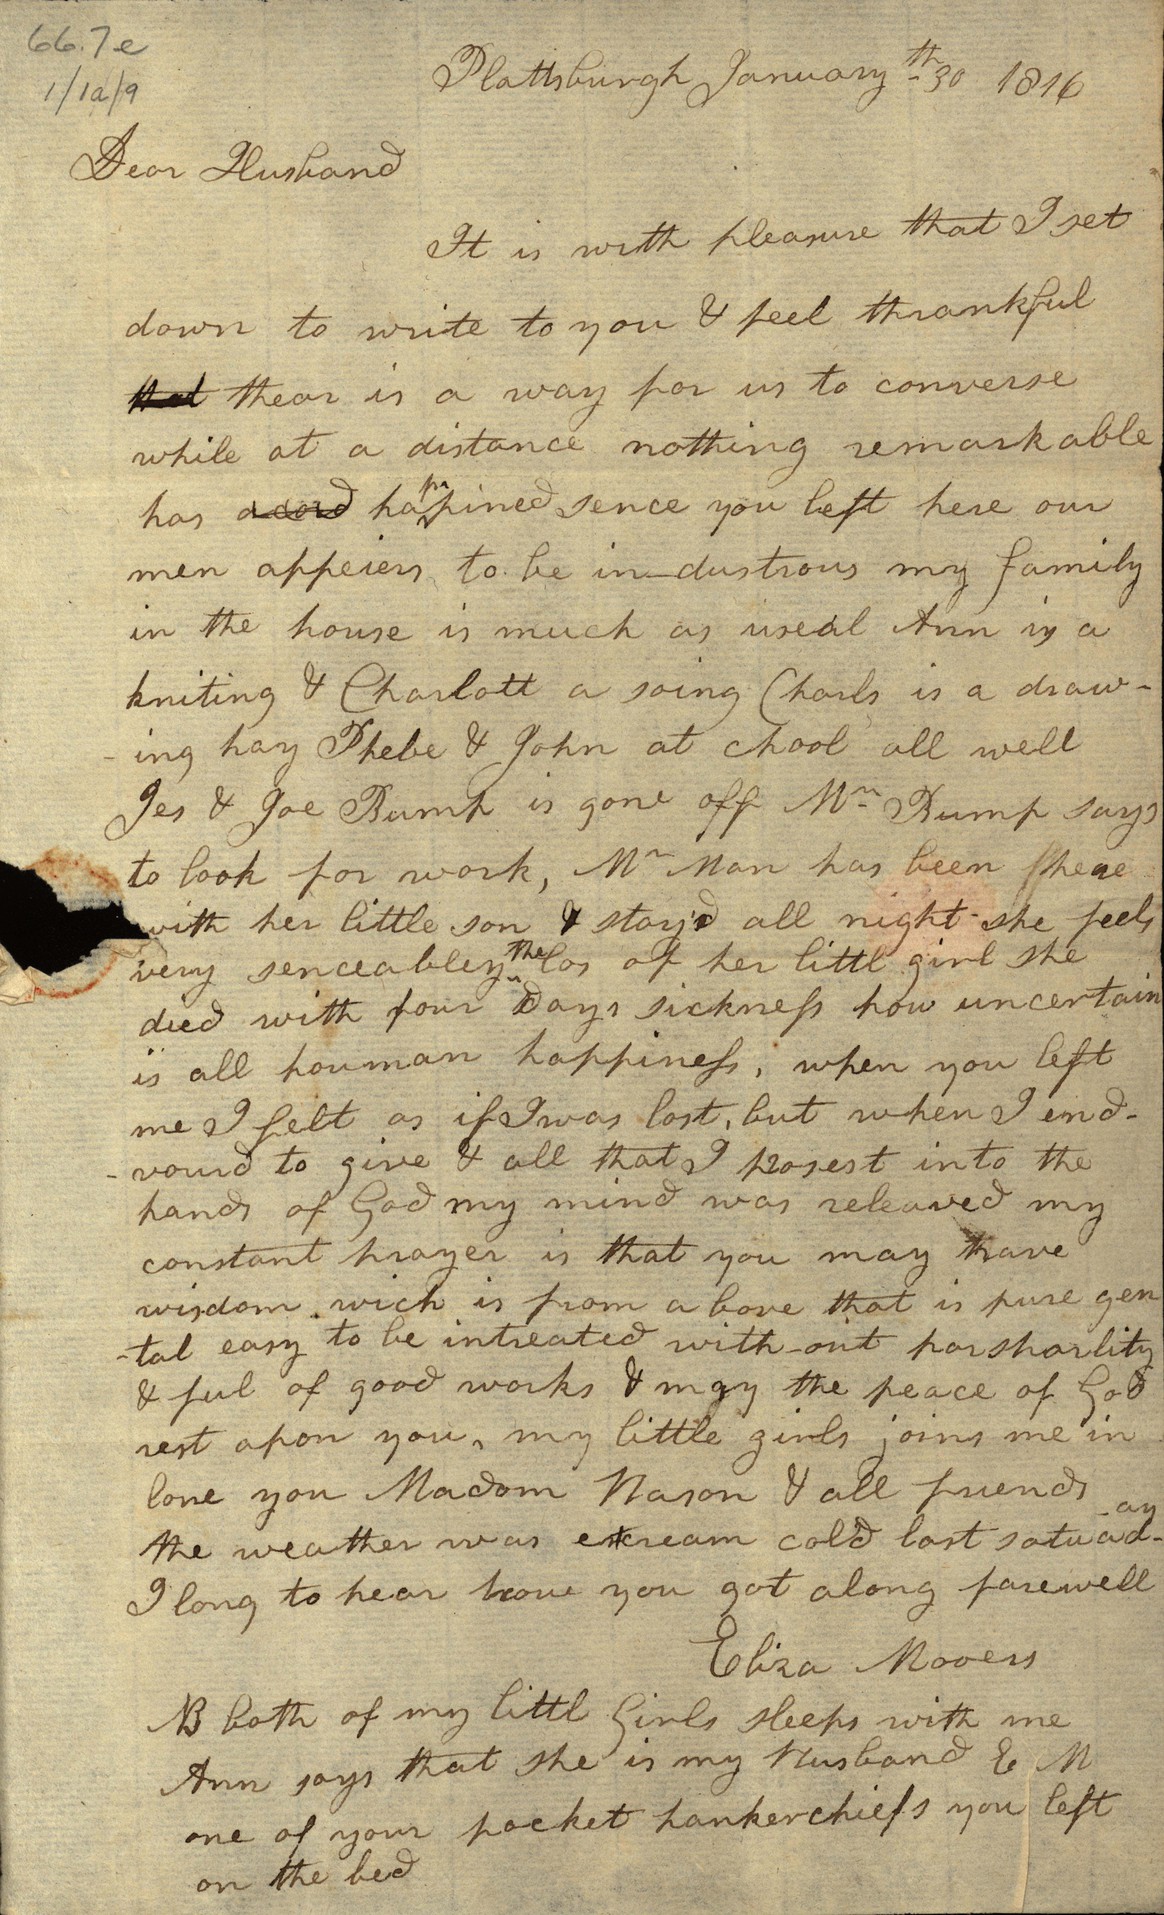 66.7e
1/1a/9
Plattsburgh January th 30 1816
Dear Husband
It is with pleasure that I set
down to write to you & feel thrankful
that thear is a way for us to converse
while at a distance nothing remarkable
has happined sence you left here our
men appeiers to be in-dustrous my family
in the house is much as useal Ann is a
kniting & Charlott a soing Charls is a draw-
-ing hay Phebe & John at chool all well
Jes & Joe Bump is gone off Mrs Bump says
to look for work, Mrs Man has been heae
with her little son & stay'd all night she feels
very senceabley the los of her littl girl she
died with four Days sickness how uncertain
is all houman happiness, when you left
me I felt as if I was lost, but when I end-
-vourd to give & all that I posest into the
hands of God my mind was releaved my
constant prayer is that you may have
wisdom wich is from a bove that is pure gen
-tal easy to be intreated with-out parsharlity
& ful of good works & may the peace of God
rest apon you, my little girls joins me in
love you Madom Nason & all friends
the weather was extream cold last satuad-ay
I long to hear howe you got along farewell
Eliza Mooers
NB both of my littl Girls sleeps with me
Ann says that she is my Husband E M
one of your pocket hankerchiefs you left
on the bed